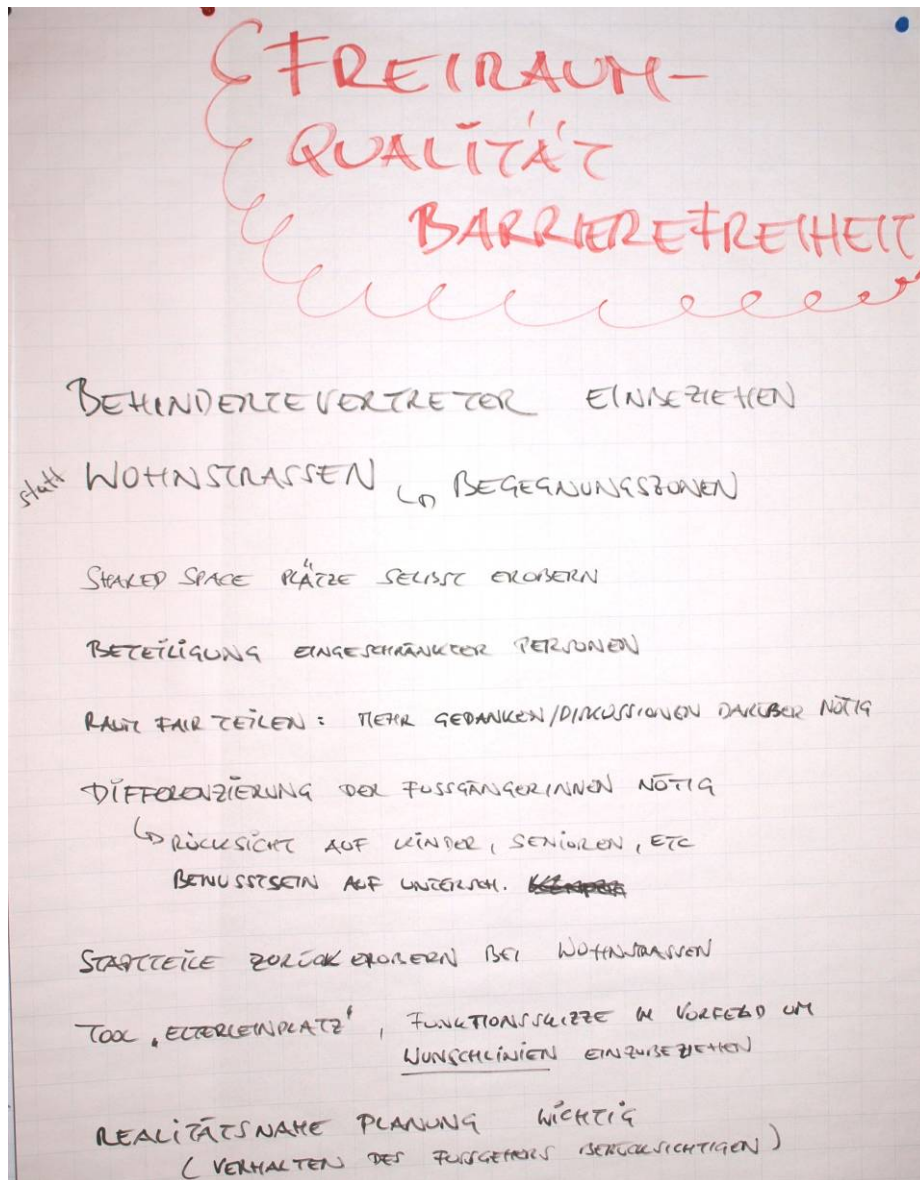 FREIRAUM-
QUALITÄT
BARRIEREFREIHEIT
BEHINDERTEVERTRETER EINBEZIEHEN
statt WOHNSTRASSEN ↳ BEGEGNUNGSZONEN
SHARED SPACE PLÄTZE SELBST EROBERN
BETEILIGUNG EINGESCHRÄNKTER PERSONEN
RAUM FAIR TEILEN: MEHR GEDANKEN/DISKUSSIONEN DARÜBER NÖTIG
DIFFERENZIERUNG DER FUSSGÄNGERINNEN NÖTIG
↳ RÜCKSICHT AUF KINDER, SENIOREN, ETC
BEWUSSTSEIN AUF UNTERSCH.
STADTTEILE ZURÜCK EROBERN BEI WOHNSTRASSEN
TOOL „ELTERLEINPLATZ", FUNKTIONSSKIZZE IM VORFELD UM
WUNSCHLINIEN EINZUBEZIEHEN
REALITÄTSNAHE PLANUNG WICHTIG
(VERHALTEN DES FUSSGEHERS BERÜCKSICHTIGEN)